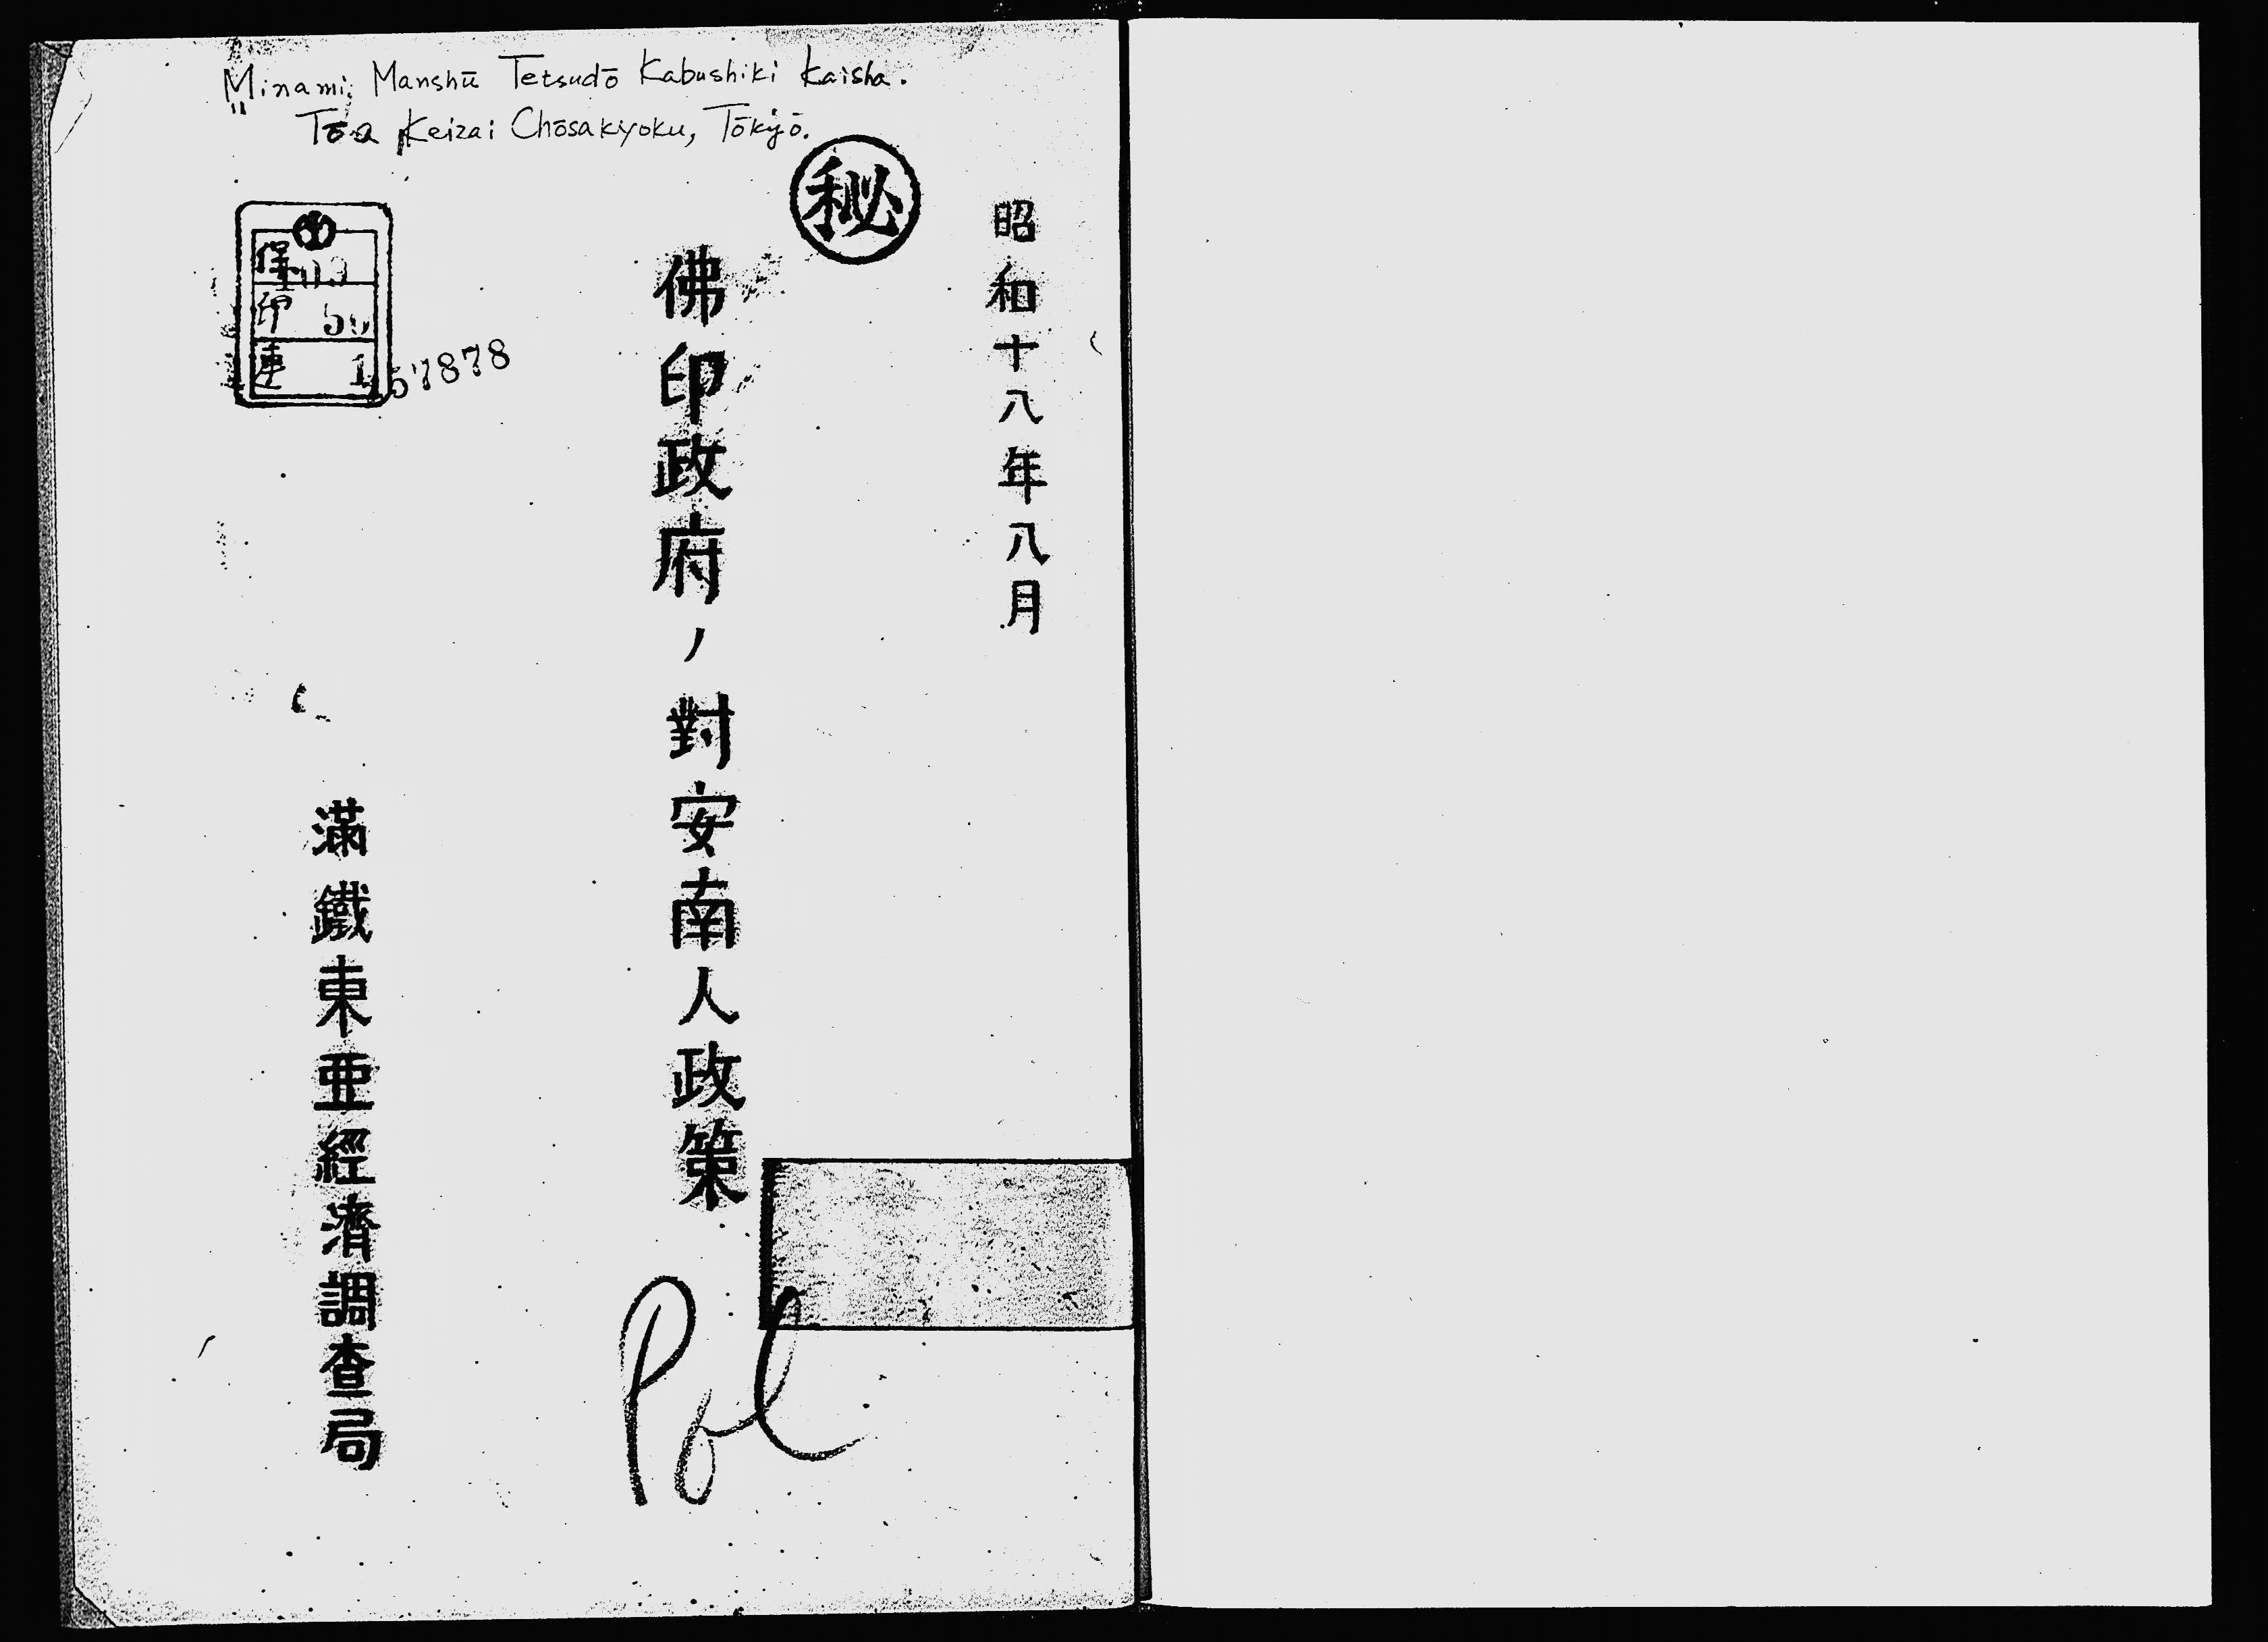 Minami Manshū Tetsudō Kabushiki Kaisha.
Tōa Keizai Chōsakyoku, Tōkyō.
昭和十八年八月
秘
佛印政府ノ對安南人政策
滿鐵東亜經濟調査局
印
157878
Pol